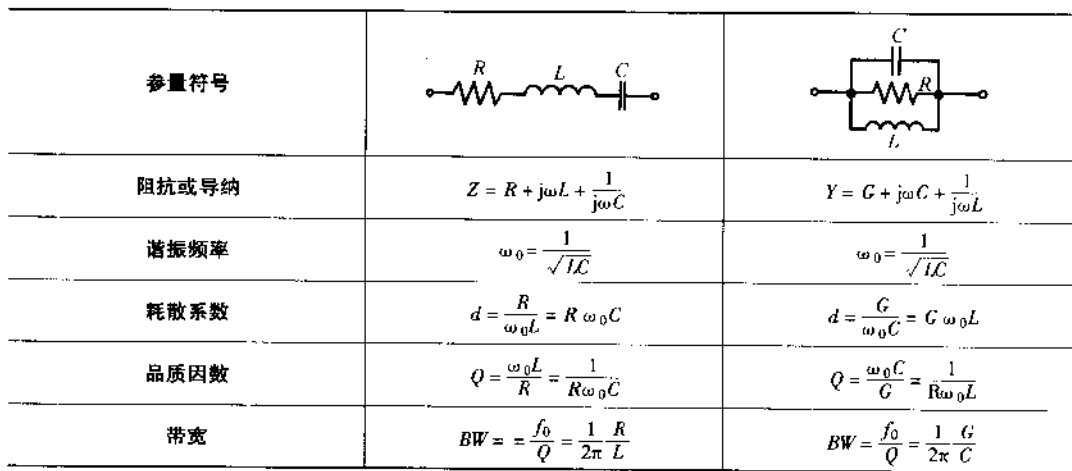 参量符号
R L C
C
R
L
阻抗或导纳 Z = R + jωL + \frac{1}{jωC} Y = G + jωC + \frac{1}{jωL}
谐振频率 ω_0 = \frac{1}{\sqrt{LC}} ω_0 = \frac{1}{\sqrt{LC}}
耗散系数 d = \frac{R}{ω_0 L} = R ω_0 C d = \frac{G}{ω_0 C} = G ω_0 L
品质因数 Q = \frac{ω_0 L}{R} = \frac{1}{Rω_0 C} Q = \frac{ω_0 C}{G} = \frac{1}{Rω_0 L}
带宽 BW = = \frac{f_0}{Q} = \frac{1}{2π} \frac{R}{L} BW = \frac{f_0}{Q} = \frac{1}{2π} \frac{G}{C}